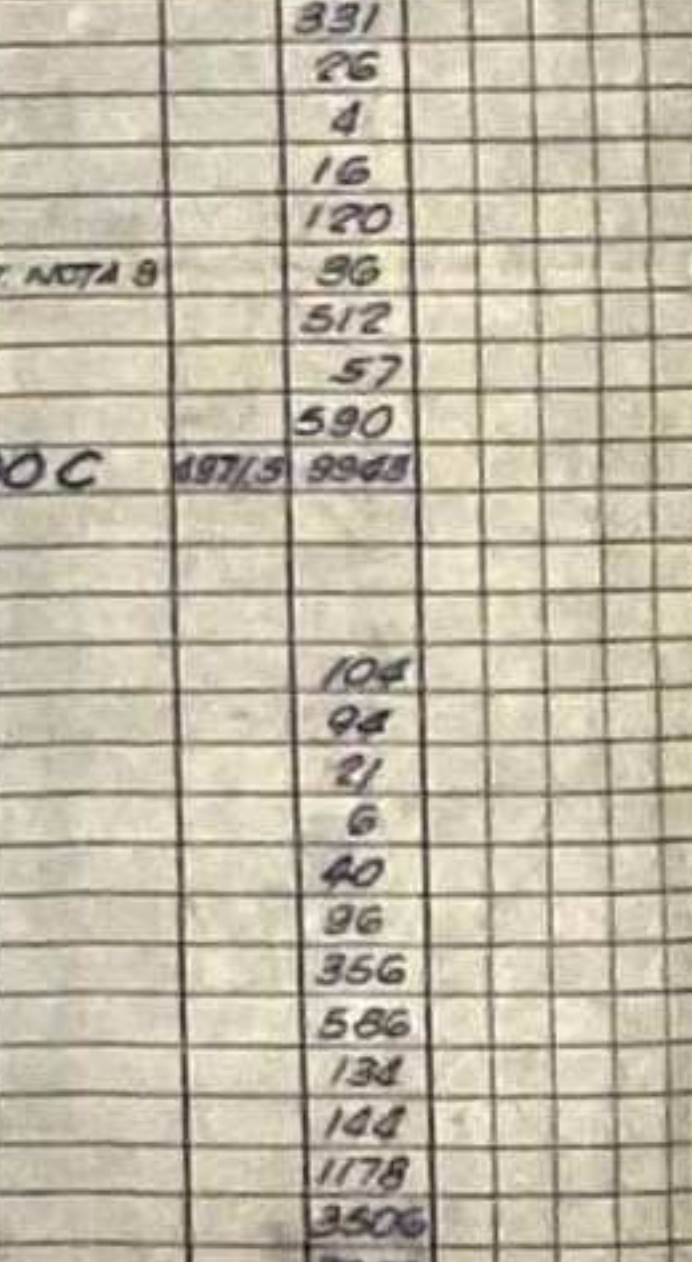 331
26
4
16
120
NOTA 8
512
57
590
OC
104
94
21
6
40
96
356
586
134
144
1178
3506